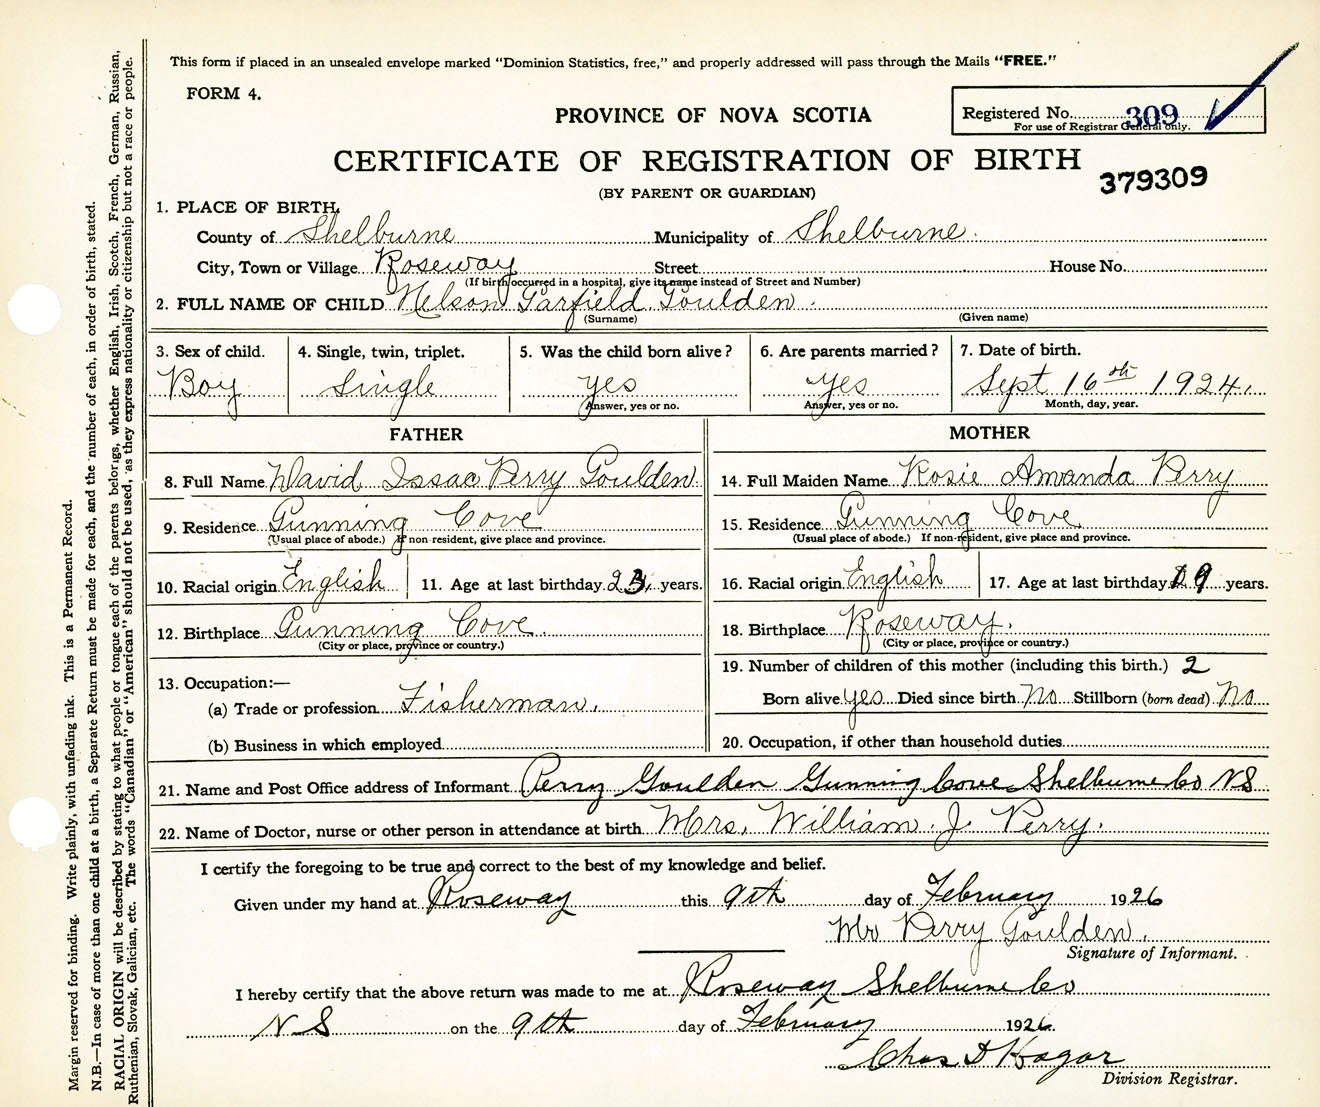 This form if placed in an unsealed envelope marked "Dominion Statistics, free," and properly addressed will pass through the Mails "FREE."
FORM 4.
PROVINCE OF NOVA SCOTIA
Registered No. 309
For use of Registrar General only.
CERTIFICATE OF REGISTRATION OF BIRTH
379309
(BY PARENT OR GUARDIAN)
1. PLACE OF BIRTH.
County of Shelburne Municipality of Shelburne.
City, Town or Village Roseway Street House No.
(If birth occurred in a hospital, give its name instead of Street and Number)
2. FULL NAME OF CHILD Nelson Garfield Goulden.
(Surname) (Given name)
3. Sex of child. 4. Single, twin, triplet. 5. Was the child born alive? 6. Are parents married? 7. Date of birth.
Boy Single yes yes Sept 16th 1924.
Answer, yes or no. Answer, yes or no. Month, day, year.
FATHER MOTHER
8. Full Name David Issac Perry Goulden. 14. Full Maiden Name Rosie Amanda Perry
9. Residence Gunning Cove 15. Residence Gunning Cove
(Usual place of abode.) If non-resident, give place and province. (Usual place of abode.) If non-resident, give place and province.
10. Racial origin English 11. Age at last birthday 23, years. 16. Racial origin English 17. Age at last birthday 19 years.
12. Birthplace Gunning Cove. 18. Birthplace Roseway.
(City or place, province or country.) (City or place, province or country.)
19. Number of children of this mother (including this birth.) 2
13. Occupation:—
(a) Trade or profession Fisherman. Born alive yes Died since birth No Stillborn (born dead) No
(b) Business in which employed 20. Occupation, if other than household duties
21. Name and Post Office address of Informant Perry Goulden Gunning Cove Shelburne Co NS
22. Name of Doctor, nurse or other person in attendance at birth Mrs. William. J. Perry.
I certify the foregoing to be true and correct to the best of my knowledge and belief.
Given under my hand at Roseway this 9th day of February 1926
Mr Perry Goulden.
Signature of Informant.
I hereby certify that the above return was made to me at Roseway Shelburne Co
NS on the 9th day of February 1926.
Chas D Hagar
Division Registrar.
Margin reserved for binding. Write plainly, with unfading ink. This is a Permanent Record.
N.B.—In case of more than one child at a birth, a Separate Return must be made for each, and the number of each, in order of birth, stated.
RACIAL ORIGIN will be described by stating to what people or tongue each of the parents belongs, whether English, Irish, Scotch, French, German, Russian,
Ruthenian, Slovak, Galician, etc. The words "Canadian" or "American" should not be used, as they express nationality or citizenship but not a race or people.